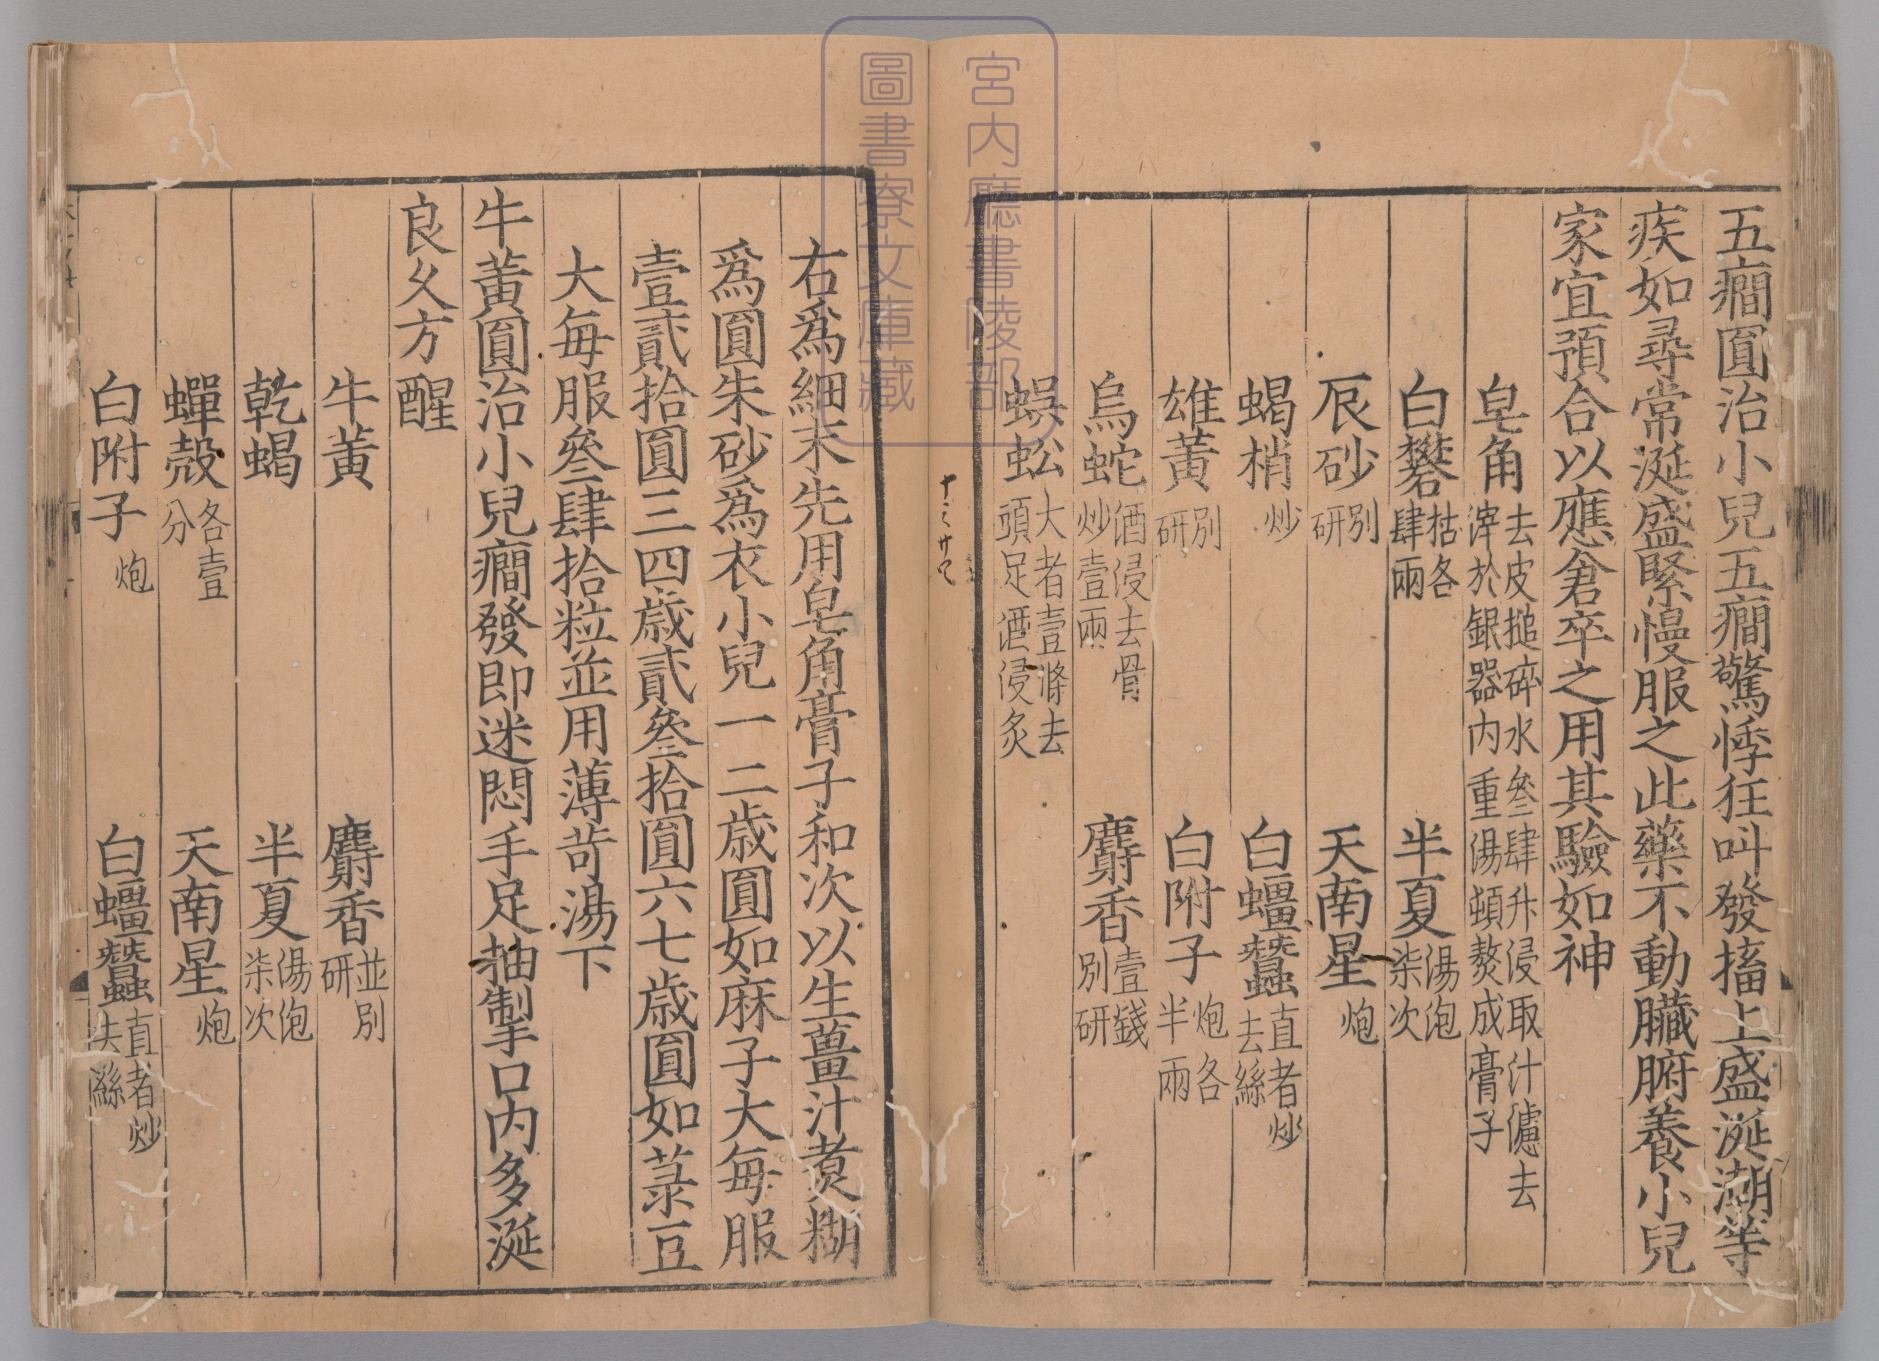 五癇圓治小兒五癇驚悸狂叫發搐上盛涎潮等
疾如尋常涎盛緊慢服之此藥不動臓腑養小兒
家宜預合以應倉卒之用其驗如神
皂角去皮搥碎水叄肆升浸取汁濾去滓於銀器内重湯頓熬成膏子
白礬枯各肆兩 半夏湯泡柒次
辰砂別研 天南星炮
蝎梢炒 白蠶直者炒去絲
雄黄別研 白附子炮各半兩
烏蛇酒浸去骨炒壹兩 麝香壹錢別研
蜈蚣大者壹條去頭足酒浸炙
右爲細末先用皂角膏子和次以生薑汁煮糊
爲圓朱砂爲衣小兒一二歳圓如麻子大每服
壹貳拾圓三四歳貳叄拾圓六七歳圓如菉豆
大每服叄肆拾粒並用薄苛湯下
牛黃圓治小兒癇發即迷悶手足抽掣口内多涎
良久方醒
牛黃 麝香並別研
乾蝎 半夏湯泡柒次
蟬殼各壹分 天南星炮
白附子炮 白蠶直者炒去絲
宮内廳書陵部
圖書寮文庫藏